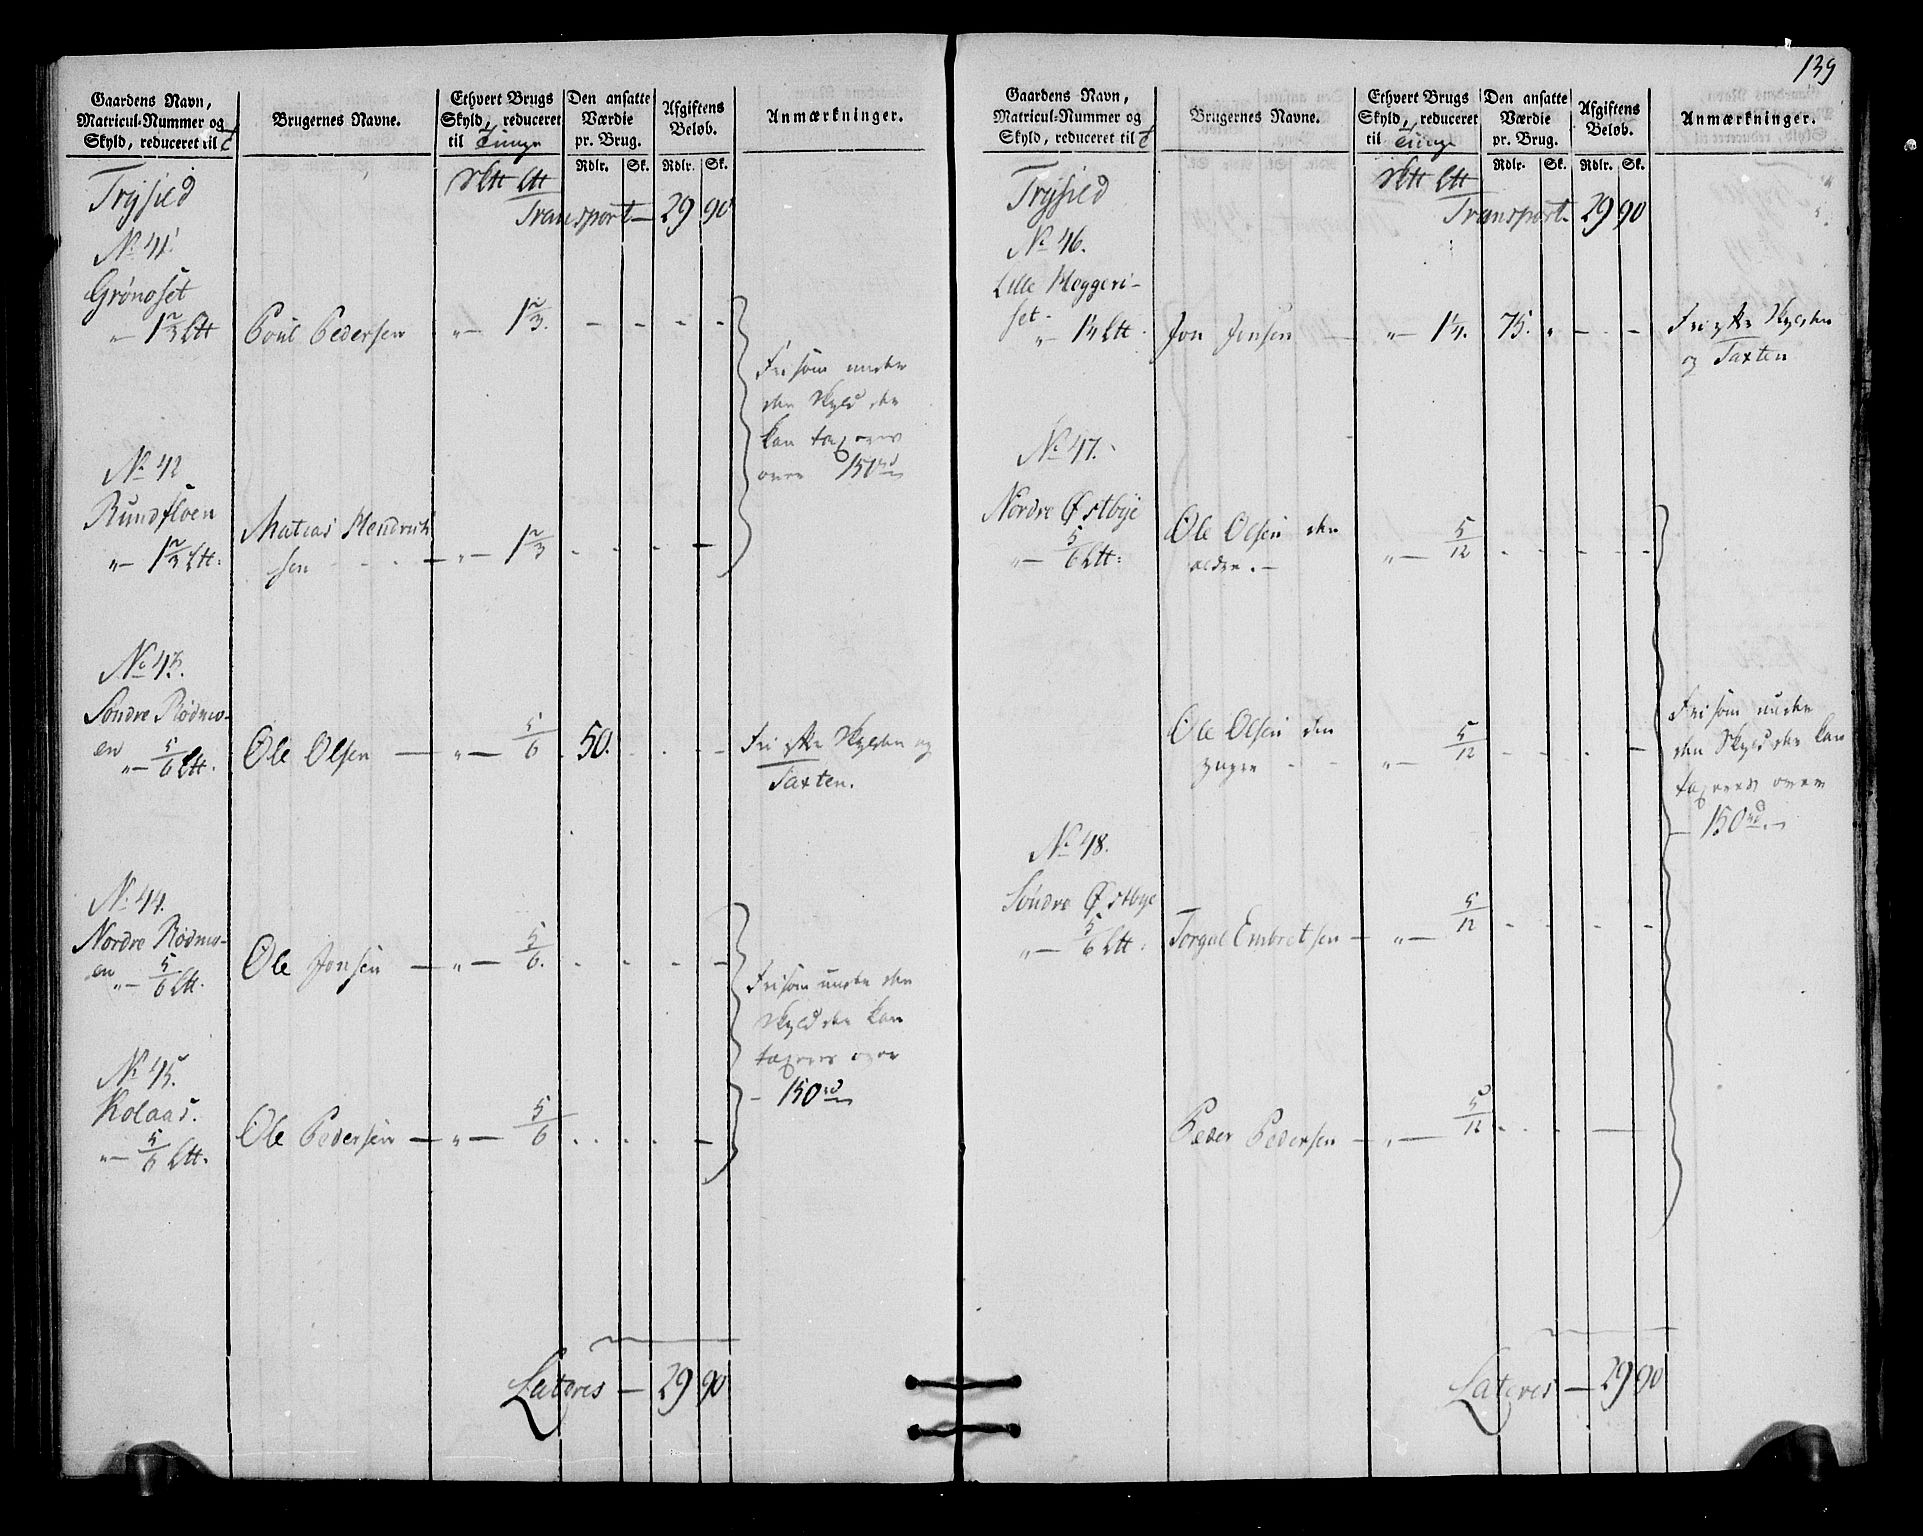 139
Gaardens Navn,
Matricul-Nummer og
Skyld, reduceret til
Brugernes Navne.
Ethvert Brugs
Skyld, reduceret
til Tunge
Den ansatte
Værdie
pr. Brug.
Rdlr. Sk.
Afgiftens
Beløb.
Rdlr. Sk.
Anmærkninger.
Trysild
Transport — 29 90
No 41.
Grønoset
„— 1 2/3 Ltt Poul Pedersen „— 1 2/3.
Fri som under
den Skyld der
kan taxeres
over 150 rd
No 42
Rundfloen
„— 1 2/3 Ltt: Matias Hendrich
sen „— 1 2/3
No 43.
Søndre Rødmo-
en „— 5/6 Ltt. Ole Olsen — „— 5/6 50.
Fri efter Skylden og
Taxten.
No 44.
Nordre Rødmo-
en „— 5/6 Ltt. Ole Jonsen — „— 5/6.
Fri som under den
Skyld der kan
taxeres over
150 rd
No 45.
Kolaas.
„— 5/6 Ltt. Ole Pedersen — „— 5/6
Lateres — 29 90
Gaardens Navn,
Matricul-Nummer og
Skyld, reduceret til
Brugernes Navne.
Ethvert Brugs
Skyld, reduceret
til Tunge
Den ansatte
Værdie
pr. Brug.
Rdlr. Sk.
Afgiftens
Beløb.
Rdlr. Sk.
Anmærkninger.
Trysild
Transport. 29 90
No 46.
Lille Heggeri-
set.
„ 1 1/4 Ltt. Jon Jonsen — „— 1 1/4. 75. „
Fri efter Skylden
og Taxten
No 47.
Nordre Østbye
„— 5/6 Ltt: Ole Olsen den
ældre. — „— 5/12
Ole Olsen den
yngre „— 5/12
Fri som under
den Skyld der kan
taxeres over
— 150 rd. —
No 48.
Søndre Østbye
„— 5/6 Ltt: Torgal Embretsen — „— 5/12
Peder Pedersen — „— 5/12
Lateres — 29 90